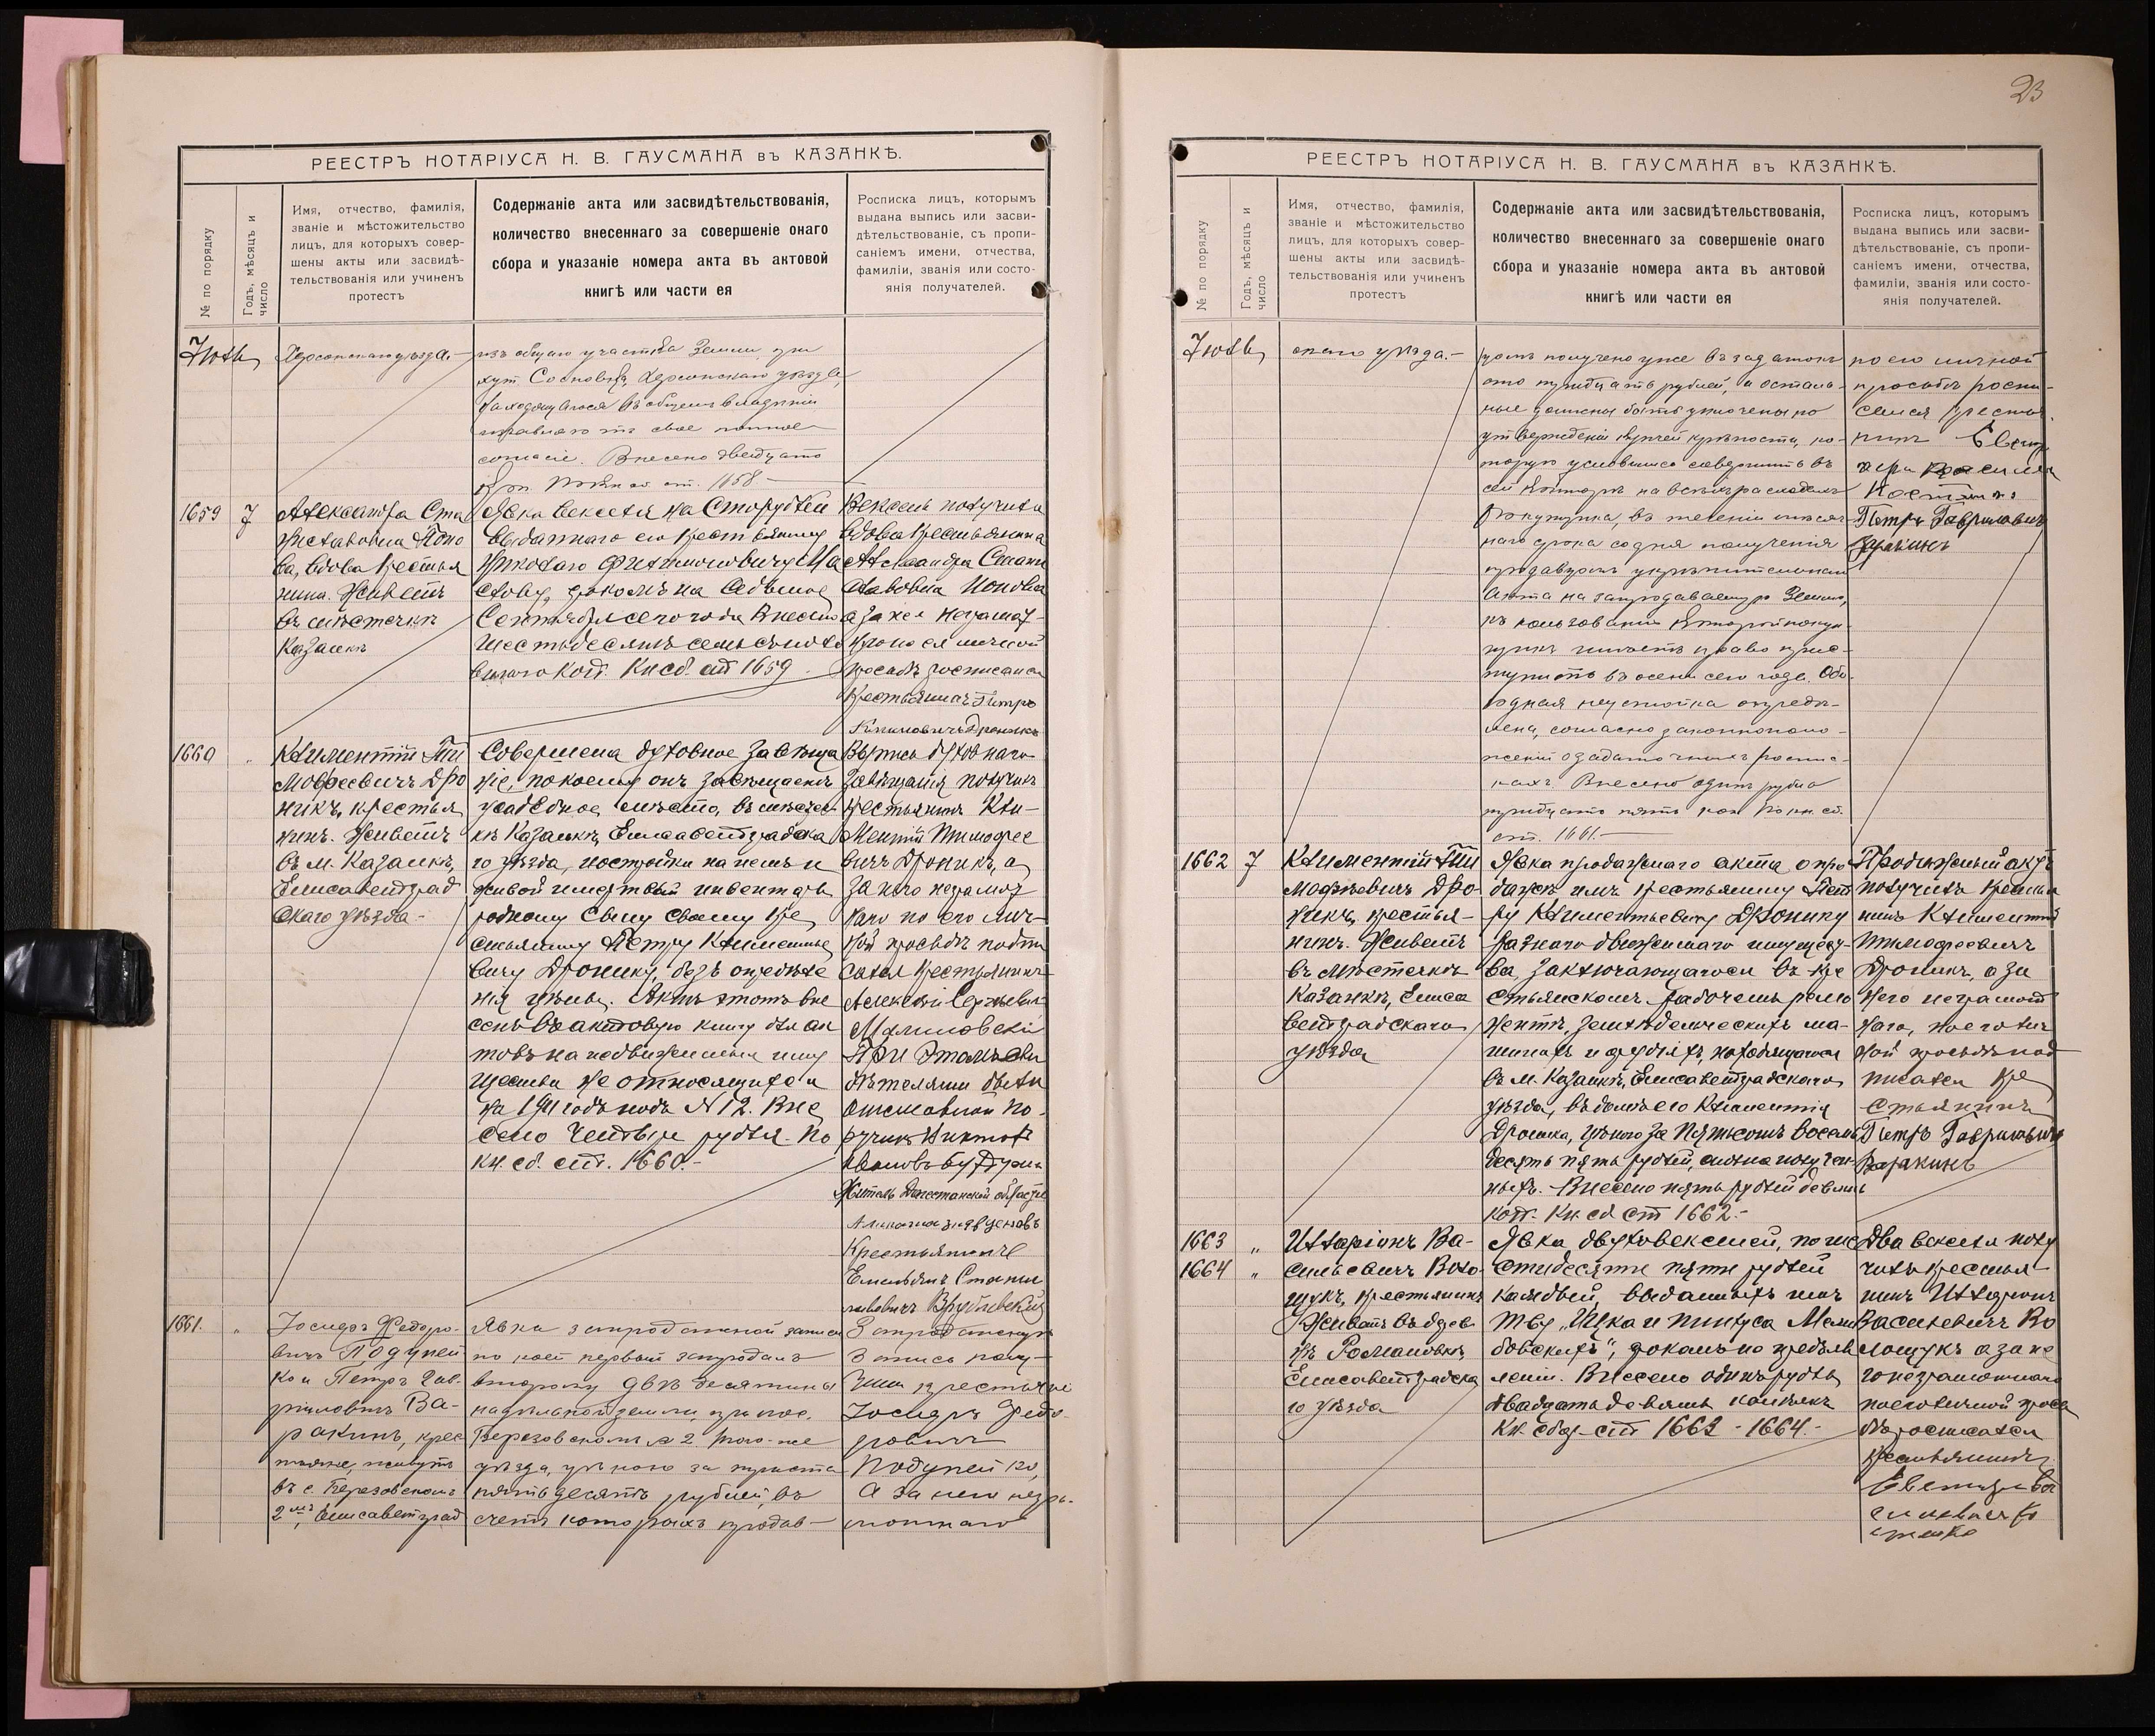 23
РЕЕСТРЪ НОТАРІУСА Н. В. ГАУСМАНА въ КАЗАНКѢ.
№ по порядку
Годъ, мѣсяцъ и
число
Имя, отчество, фамилія,
званіе и мѣстожительство
лицъ, для которыхъ совер-
шены акты или засвидѣ-
тельствованія или учиненъ
протестъ
Содержаніе акта или засвидѣтельствованія,
количество внесеннаго за совершеніе онаго
сбора и указаніе номера акта въ актовой
книгѣ или части ея
Росписка лицъ, которымъ
выдана выпись или засви-
дѣтельствованіе, съ пропи-
саніемъ имени, отчества,
фамиліи, званія или состо-
янія получателей.
Іюль
Херсонскаго уѣзда.-
изъ общаго участка земли при
хут. Сосновкѣ, Херсонскаго уѣзда,
находящагося въ общемъ владѣніи
свое полное
согласіе. Внесено двадцать
1658
1659
7
Александра Ста
ниславовна Попо
ва, вдова крестья
нина. Живетъ
въ мѣстечкѣ
Казанкѣ
Явка векселя на Сто рублей
выданнаго ею крестьянину
Николаю Филимоновичу
срокомъ на седьмое
Сентября сего года Внесено
шестьдесятъ семь съ поло
виною коп. Кн сб. ст 1659.
Вексель получила
вдова крестьянина
Александра Стани
славовна Попова
а за нея неграмот-
ную по ея личной
просьбѣ росписался
крестьянинъ Петръ
1660
"
Климентій Ти
мофеевичъ Дро
никъ, крестья
нинъ. Живетъ
въ м. Казанкѣ,
Елисаветград
скаго уѣзда-
Совершена духовное завѣща
ніе, по коему онъ завѣщаетъ
усадебное мѣсто, въ мѣстеч-
кѣ Казанкѣ, Елисаветградска
го уѣзда, постройки на немъ и
живой и мертвый инвентарь
родному сыну своему кре
стьянину Петру Климентье
вичу Дронику, безъ опредѣле
нія цѣны. Актъ этотъ вне
сенъ въ актовую книгу для ак
товъ на недвижимыя иму
щества не относящихся
на 1911 годъ подъ № 12. Вне
сено Четыре рубля. По
кн. сб. ст. 1660.-
Выпись духовнаго
завѣщанія получилъ
крестьянинъ Кли-
ментій Тимофее
вичъ Дроникъ, а
за него неграмот
наго по его лич-
ной просьбѣ подпи
сался крестьянинъ
Алексѣй Сергѣевичъ
Малиновскій
При этомъ сви
дѣтелями были
отставной по-
ручикъ
Житель Дагестанской области
Крестьянинъ
Емельянъ Стани
славовичъ Врублевскій
1661.
"
Іосифъ Федоро-
вичъ Подупей
ко и Петръ Гав-
риловичъ Ва-
ракинъ, крес
тьяне, живутъ
въ с. Березовскомъ
2мъ, Елисаветград
Явка запродажной записи
по коей первый запродалъ
второму двѣ десятины
надѣльной земли, при пос.
Березовскомъ № 2 того-же
уѣзда, цѣною за триста
пятьдесятъ рублей, въ
счетъ которыхъ продав-
Запродажную
запись полу-
чилъ крестьянинъ
Іосифъ Федо-
ровичъ
Подупейко,
а за него негра-
мотнаго
РЕЕСТРЪ НОТАРІУСА Н. В. ГАУСМАНА въ КАЗАНКѢ.
№ по порядку
Годъ, мѣсяцъ и
число
Имя, отчество, фамилія,
званіе и мѣстожительство
лицъ, для которыхъ совер-
шены акты или засвидѣ-
тельствованія или учиненъ
протестъ
Содержаніе акта или засвидѣтельствованія,
количество внесеннаго за совершеніе онаго
сбора и указаніе номера акта въ актовой
книгѣ или части ея
Росписка лицъ, которымъ
выдана выпись или засви-
дѣтельствованіе, съ пропи-
саніемъ имени, отчества,
фамиліи, званія или состо-
янія получателей.
Іюль
скаго уѣзда.-
цомъ получено уже въ задатокъ
сто тридцать рублей, а осталь-
ные должны быть уплочены по
утвержденіи купчей крѣпости, ко-
торую условились совершить въ
сей Конторѣ на
покупщика, въ теченіи мѣсяч-
наго срока со дня полученія
продавцомъ укрѣпительнаго
акта на запродаваемую землю,
къ пользованію которой покуп-
щикъ имѣетъ право прис-
тупить въ осень сего года. Обо-
юдная неустойка опредѣ-
лена, согласно законополо-
женій о задаточныхъ роспис-
кахъ. Внесено одинъ рубль
тридцать пять коп По кн. сб.
ст. 1661.-
по его личной
просьбѣ роспи-
сался крестья
нинъ
Петръ Гавриловичъ
Варакинъ
1662
7
Климентій Ти
мофѣевичъ Дро
никъ, крестья-
нинъ. Живетъ
въ мѣстечкѣ
Казанкѣ, Елиса
ветградскаго
уѣзда
Явка продажнаго акта о про
дажѣ имъ крестьянину Пет
ру Климентьевичу Дронику
разнаго движимаго имущест-
ва, заключающагося въ кре
стьянскомъ рабочемъ реман
нентѣ, земледельческихъ ма-
шинахъ и орудіяхъ, находящагося
въ м. Казанкѣ, Елисаветградскаго
уѣзда, въ домѣ его Климентія
Дроника, цѣною за Пятьсотъ восемь
десять пять рублей, сполна получен-
ныхъ. Внесено пять рублей девять
коп. Кн. сб ст 1662.-
Продажный актъ
получилъ крестья
нинъ Климентій
Тимофеевичъ
Дроникъ, а за
него неграмот
наго, по его лич
ной просьбѣ под-
писался кре
стьянинъ
Петръ Гавриловичъ
Варакинъ
1663
"
1664
"
Илларіонъ Ва-
сильевичъ Воло-
щукъ, крестьянинъ
Живетъ въ дерев
нѣ Романовкѣ,
Елисаветградска
го уѣзда
Явка двухъ векселей, по ше
стидесяти пяти рублей
каждый, выданныхъ имъ
Т-ву „Щка и Пинкуса
", срокомъ по предъяв
леніи. Внесено одинъ рубль
двадцать девять копѣекъ
Кн. сбор. ст 1663 - 1664.-
Два векселя полу
чилъ крестья-
нинъ Илларіонъ
Васильевичъ Во
лощукъ а за не
го неграмотнаго
по его личной прось
бѣ росписался
крестьянинъ